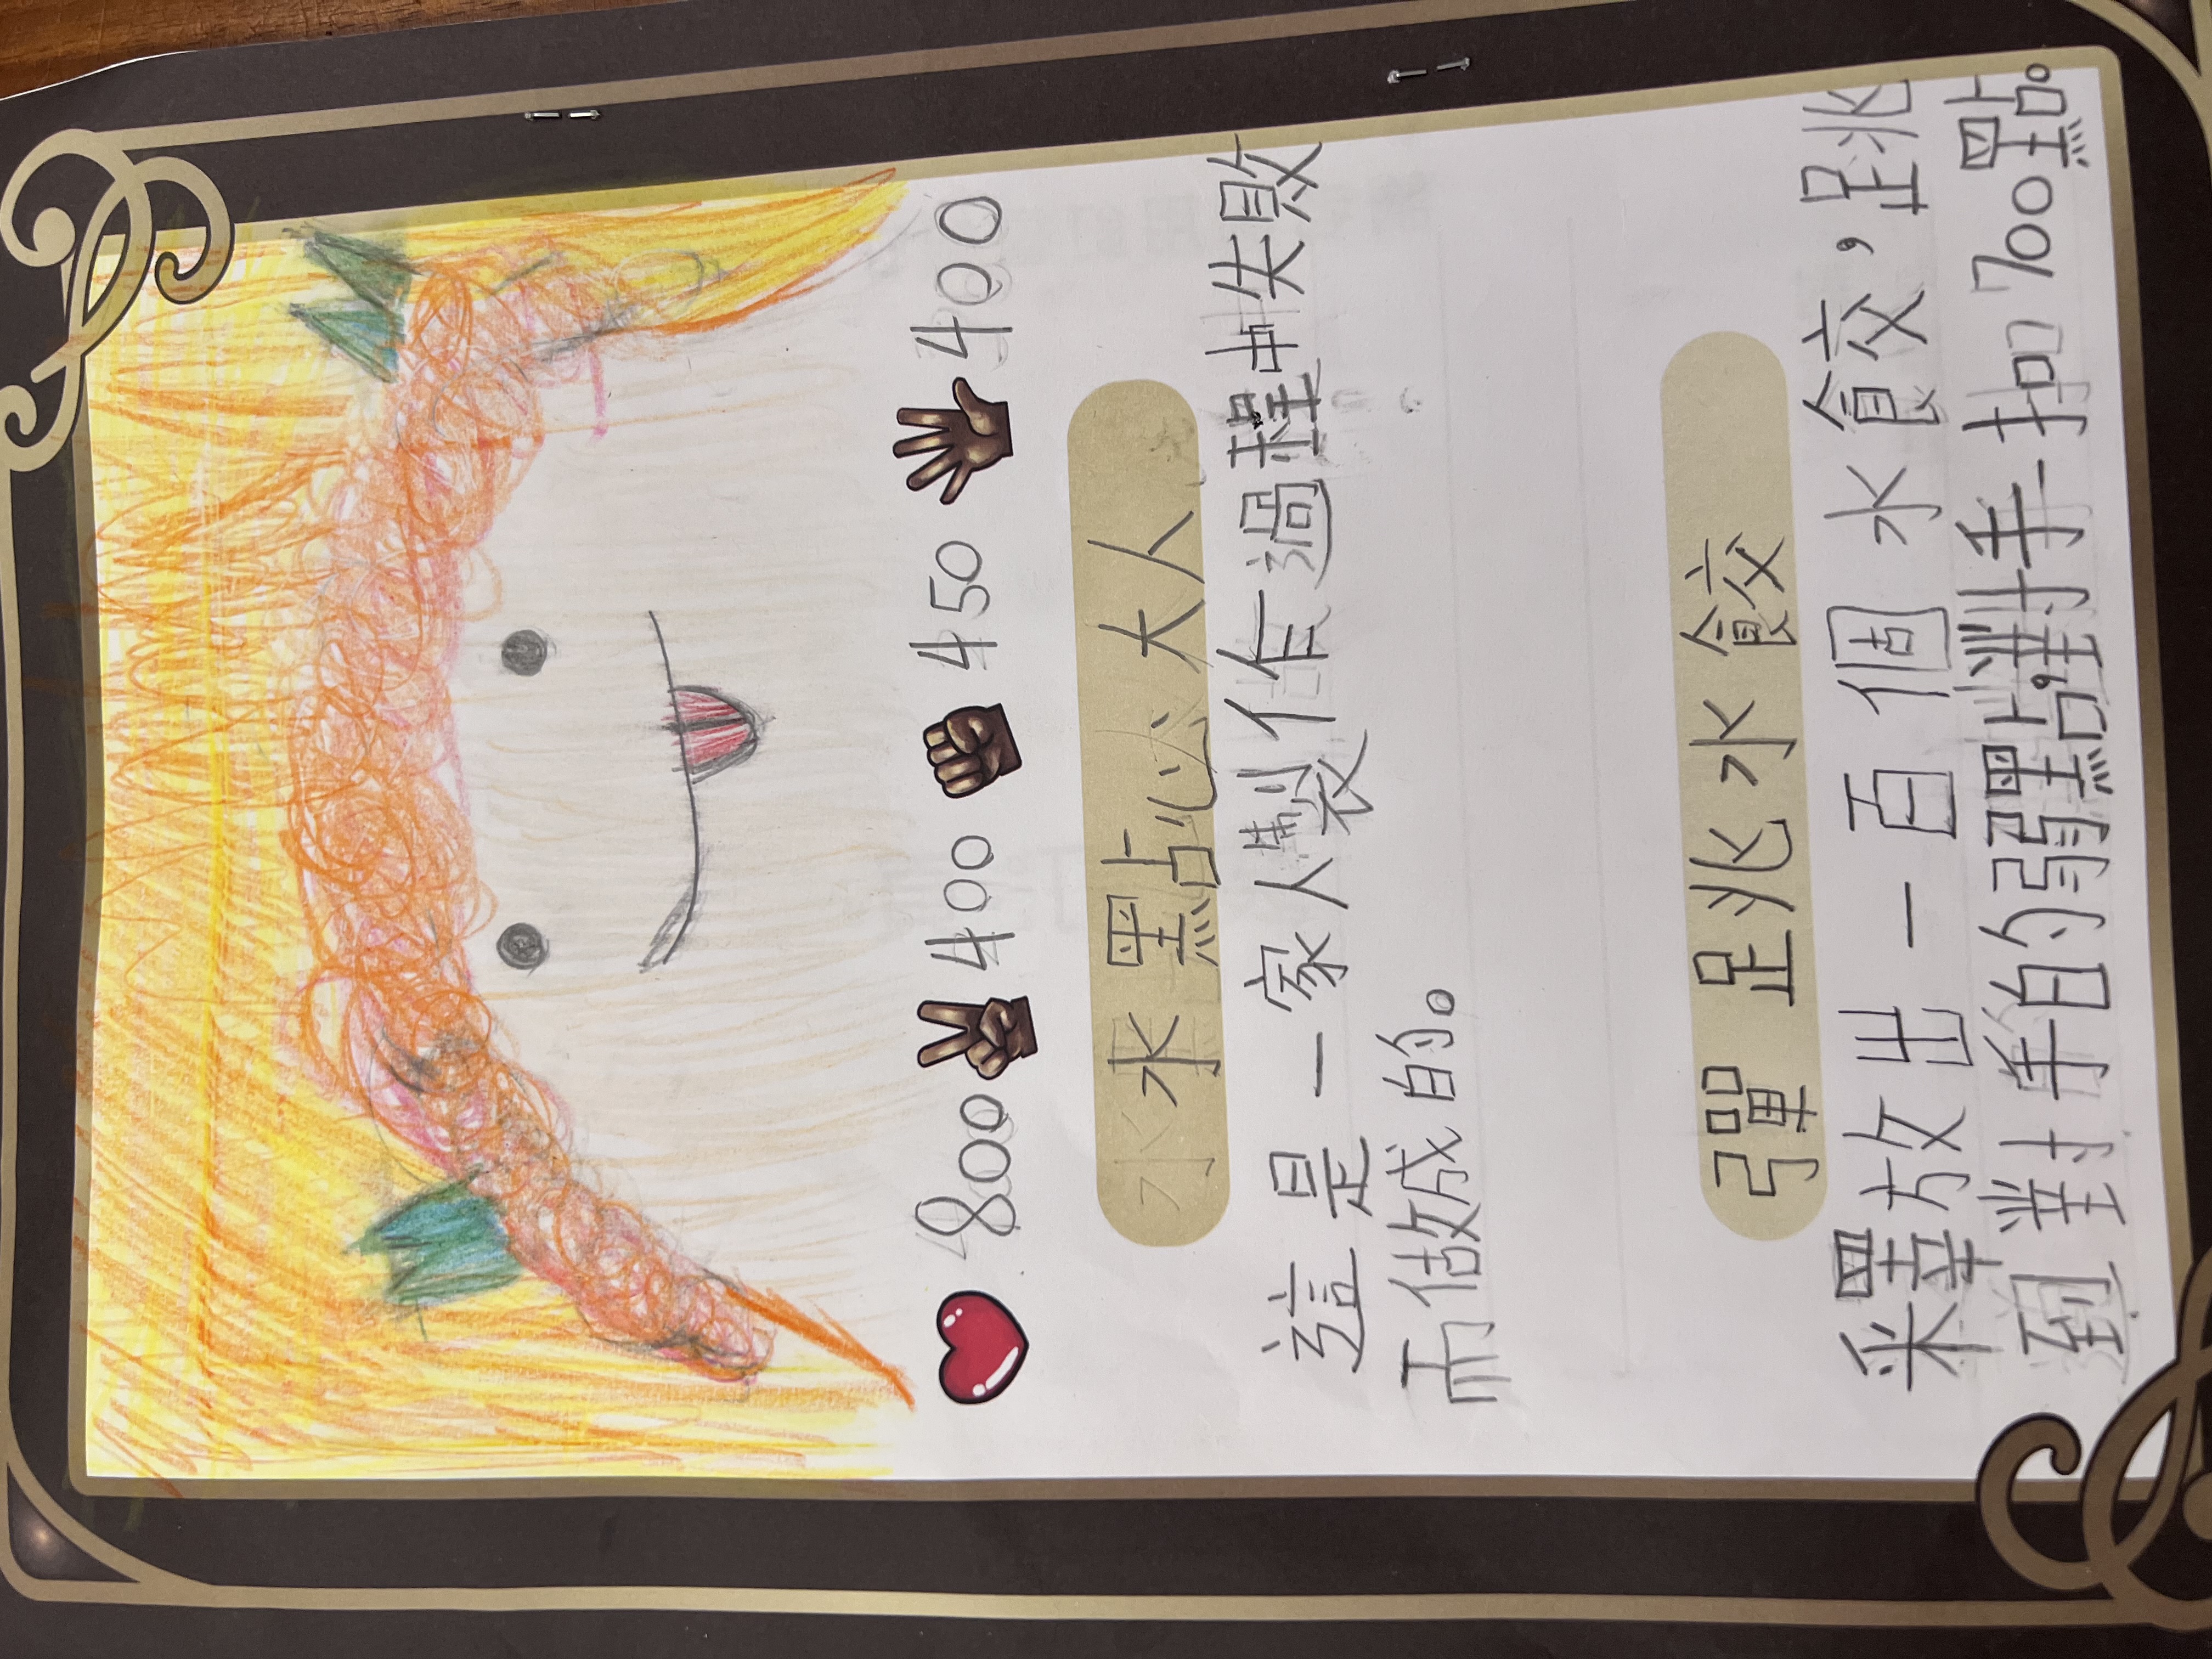 800 400 450 400
水點心大人
這是一家人製作過程中失敗
而做成的。
彈跳水餃
釋放出一百個水餃,跳
到對手的弱點,對手扣700點。